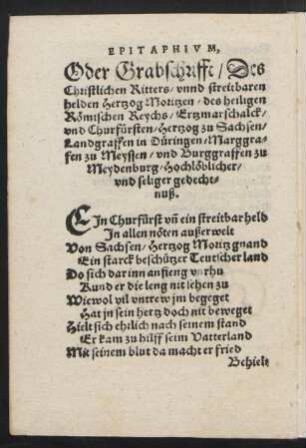 EPITAPHIVM,
Oder Grabschrifft / Des
Christlichen Ritters / vnnd streitbaren
helden Hertzog Moritzen / des heiligen
Römischen Reychs / Ertzmarschalck /
vnd Churfürsten / Hertzog zu Sachsen /
Landgraffen in Düringen / Marggra-
fen zu Meyssen / vnd Burggraffen zu
Meydenburg / Hochlöblicher /
vnd seliger gedecht-
nuß.
EIn Churfürst vñ ein streitbar held
In allen nöten außerwelt
Von Sachsen / Hertzog Moritz gnand
Ein starck beschützer Teutscher land
Do sich dar inn anfieng vnrhu
Kund er die leng nit sehen zu
Wiewol vil vntrew jm begeget
Hat jn sein hertz doch nit beweget
Hielt sich ehrlich nach seinem stand
Er kam zu hülff seim Vatterland
Mit seinem blut da macht er fried
Behielt